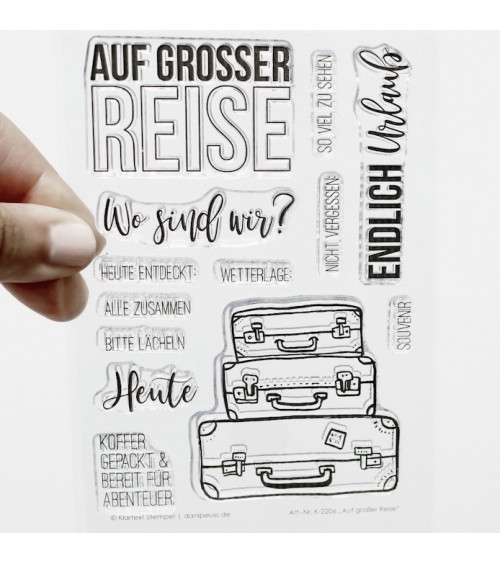 AUF GROSSER
REISE
SO VIEL ZU SEHEN
ENDLICH Urlaub
Wo sind wir?
NICHT VERGESSEN:
HEUTE ENTDECKT:
WETTERLAGE:
ALLE ZUSAMMEN
BITTE LÄCHELN
SOUVENIR
Heute
KOFFER
GEPACKT &
BEREIT FÜR
ABENTEUER
© Klartext Stempel | danipeuss.de
Art.-Nr. K-2206 „Auf großer Reise"